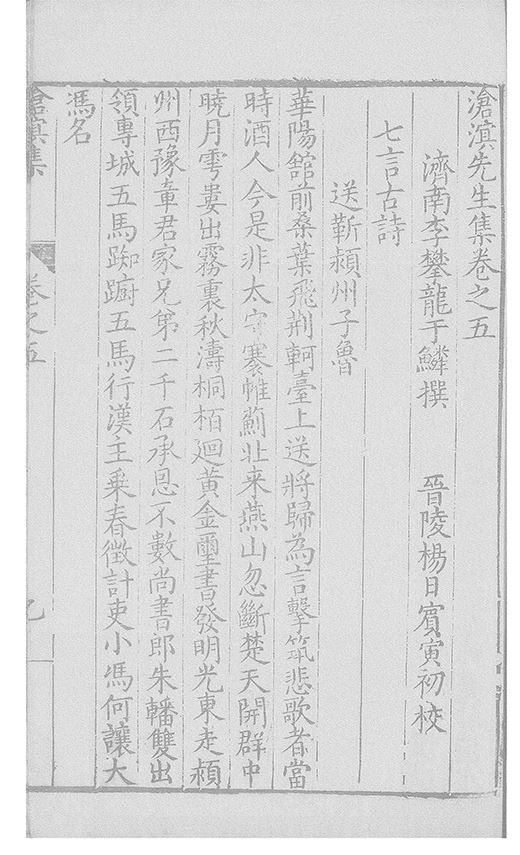 滄溟先生集卷之五
濟南李攀龍于鱗撰 晉陵楊日賓寅初校
七言古詩
送靳潁州子魯
華陽舘前桑葉飛荆軻臺上送將歸為言擊筑悲歌者當
時酒人今是非太守褰帷薊北来燕山忽斷楚天開群中
曉月雩婁出霧裏秋濤桐栢廻黃金璽書發明光東走潁
州西豫章君家兄弟二千石承恩不數尚書郎朱轓雙出
領專城五馬踟躕五馬行漢主乘春徵計吏小馮何讓大
馮名
滄溟集 卷之五